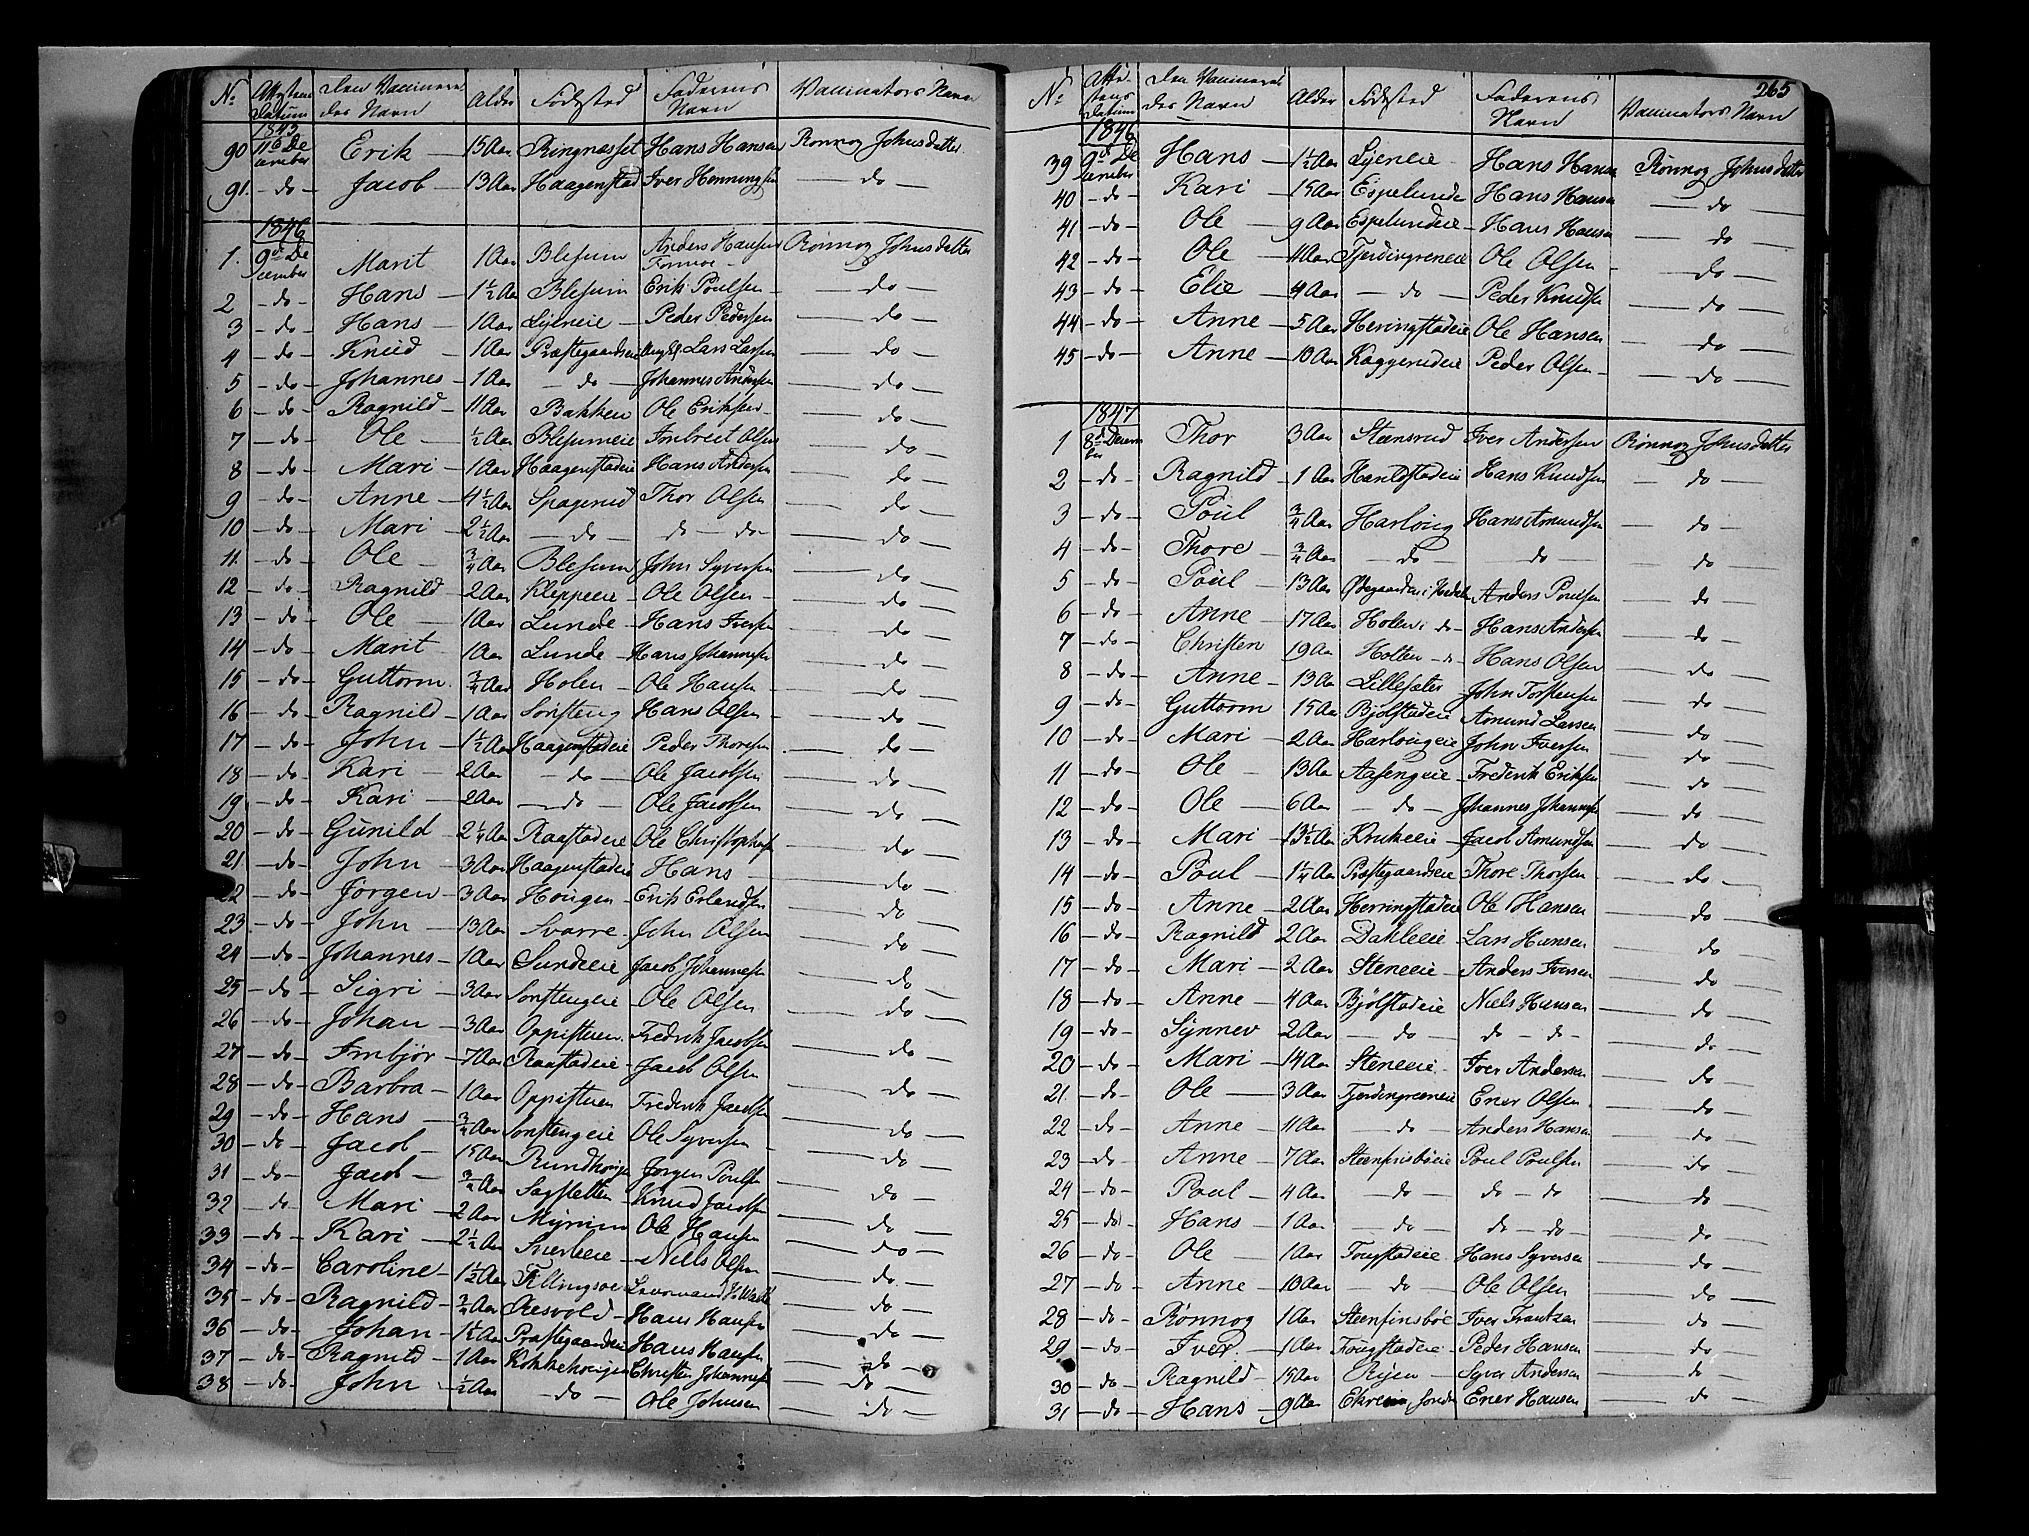 No Attestens Datum Den Vaccineredes Navn Alder Fødested Faderens Navn Vaccinators Navn
1845
90 11te December Erik 15 Aar Ringnæsset Hans Hansen Rønnog Johnsdatter
91. - do - Jacob - 13 Aar Haagenstad Iver Henningsen - do -
1846
1. 9de December Marit 1 Aar Blesum Anders Hansen Rønnog Johnsdatter
2 - do - Hans - 1½ Aar Blesum Erik Poulsen - do -
3 - do - Hans - 1 Aar Lyeneie - Peder Pedersen - do -
4 - do - Knud - 1 Aar Præstegaardseie Lars Larsen - do -
5 - do - Johannes - 1 Aar - do - Johannes Andersen - do -
6 - do - Ragnild - 11 Aar Bakken Ole Eriksen - do -
7 - do - Ole - ½ Aar Blesumeie Imbreit Olsen do -
8 - do - Mari - 1 Aar Haagenstadeie Hans Andersen - do -
9 - do - Anne - 4½ Aar Spagerud Thor Olsen - do -
10 - do - Mari - 2½ Aar - do - do - do - - do -
11. - do - Ole - ¾ Aar Blesum John Syversen - do -
12 - do - Ragnild - 2 Aar Kleppeie - Ole Olsen - - do -
13 - do - Ole - 1 Aar Lunde - Hans Iversen - do -
14 - do - Marit 1 Aar Lunde - Hans Johannesen - do -
15 - do - Guttorm. ¾ Aar Holen - Ole Hansen - - do -
16 - do - Ragnild - 1 Aar Sønsteng Hans Olsen - - do -
17 - do - John - 1½ Aar Haagenstadeie Peder Thoresen - do -
18 - do - Kari - 2 Aar - do - Ole Jacobsen - do -
19 - do - Kari - 2 Aar - do - Ole Jacobsen - do -
20 - do - Gunild - 2¼ Aar Raastadeie Ole Christophersen - do -
21 - do - John - 3 Aar Haagenstadeie Hans - - do -
22 - do - Jørgen - 3 Aar Hougen - Erik Erlandsen - do
23 - do - John - 13 Aar Svarre - John Olsen - do -
24 - do - Johannes - 1 Aar Sundeeie Jacob Johannesen - do -
25 - do - Sigri - 3 Aar Sønstengeie - Ole Olsen - do -
26 - do - Johan - 3 Aar Oppistuen. Fredrik Jacobsen - do -
27 - do - Imbjør - 7 Aar Raastadeie - Jacob Olsen - do -
28 - do - Barbra - 1 Aar Oppistuen Frederik Jacobsen - do -
29 - do - Hans - ¾ Aar Sønstengeie Ole Syversen - do -
30 - do - Jacob - 15 Aar Rundhougen Jørgen Poulsen - do -
31 - do - Jacob - ¾ Aar Sagstetten Knud Jacobsen - do -
32 - do - Mari - 2 Aar Myrum Ole Hansen - do -
33 - do - Kari - 2½ Aar Snerleeie - Niels Olsen - do -
34 - do - Caroline - 1½ Aar - do -
35 - do - Ragnild - ¾ Aar Aasvold - Hans Hansen - do -
36 - do - Johan - 1½ Aar Præstegaardseie Hans Hansen - do -
37 - do - Ragnild - 1 Aar Kokkehougen Christen Johannesen - do -
38 - do - John - ½ Aar - do - Ole Johnsen - do -
265
No Attestens Datum Den Vaccineredes Navn Alder Fødested Faderens Navn Vaccinators Navn
1846
39 9de December Hans - 1½ Aar Lyeneie - Hans Hansen Rønnog Johnsdatter
40 - do - Kari - 15 Aar Espelunde Hans Hansen - do -
41 - do - Ole - 9 Aar Espelundeie - Hans Hansen - do -
42 - do - Ole - 11 Aar Tjerdingreneie Ole Olsen - - do -
43 - do - Elie - 4 Aar - do - Peder Knudsen - do -
44 - do - Anne - 5 Aar Heringstadeie Ole Hansen - do -
45 - do - Anne - 10 Aar Kaggerudeie Peder Olsen - - do -
1847
1 8de December Thor 3 Aar Steensrud Iver Andersen Rønnog Johnsdatter
2 - do - Ragnild - 1 Aar Hanldstadeie Hans Knudsen - do -
3 - do - Poul ¾ Aar Harloug Hans Amundsen - do -
4 - do - Thore - ¾ Aar - do - do - - do -
5 - do - Poul 13 Aar Ødegaarden i Anders Poulsen do -
6 - do - Anne - 17 Aar Holen i do - Hans Andersen - do -
7 - do - Christen 19 Aar Holten - do Hans Olsen - do -
8 - do - Anne - 13 Aar Lillesæter John Torstensen - do -
9 - do - Guttorm 15 Aar Bjølstadeie Amund Larsen - do -
10 - do - Mari - 2 Aar Harlougeie John Iversen - do -
11 - do - Ole - 13 Aar Aasengeie - Frederik Eriksen - do -
12 - do - Ole - 6 Aar - do - Johannes Johannesen - do -
13 - do - Mari - 13½ Aar Krukeeie - Jacob Amundsen - do -
14 - do - Poul - 1¼ Aar Præstegaardseie Thore Thorsen - do -
15 - do - Anne - 2 Aar Herringstadeie Ole Hansen - do -
16 - do - Ragnild 2 Aar Dahleeie - Lars Hansen - do -
17 - do - Mari - 2 Aar Steneeie - Anders Iversen - do -
18 - do - Anne - 4 Aar Bjølstadeie Niels Hansen - do -
19 - do - Synnev 2 Aar - do - do - do - - do -
20 - do - Mari - 14 Aar Steneeie - Iver Andersen - do -
21. - do - Ole - 3 Aar Tjerdingreneie Ener Olsen - do -
22 - do - Anne - 11 Aar - do - Anders Hansen - do -
23 - do - Anne - 7 Aar Steenfinsbøeie Poul Poulsen - do -
24 - do - Poul - 4 Aar do - do - do - do -
25 - do - Hans - 1 Aar do - do - do - - do -
26 - do - Ole - 1 Aar Tougstadeie. Hans Syversen - do -
27 - do - Anne - 10 Aar - do - Ole Olsen - do -
28 - do - Rønnog 1 Aar Steenfinsbøe Iver Frantzen - do -
29 - do - Iver. - 1 Aar Tougstadeie - Peder Hansen - do -
30 - do - Ragnild - 15 Aar Rijen - Syver Andersen - do -
31 - do - Hans - 9 Aar Ener Hansen - do -